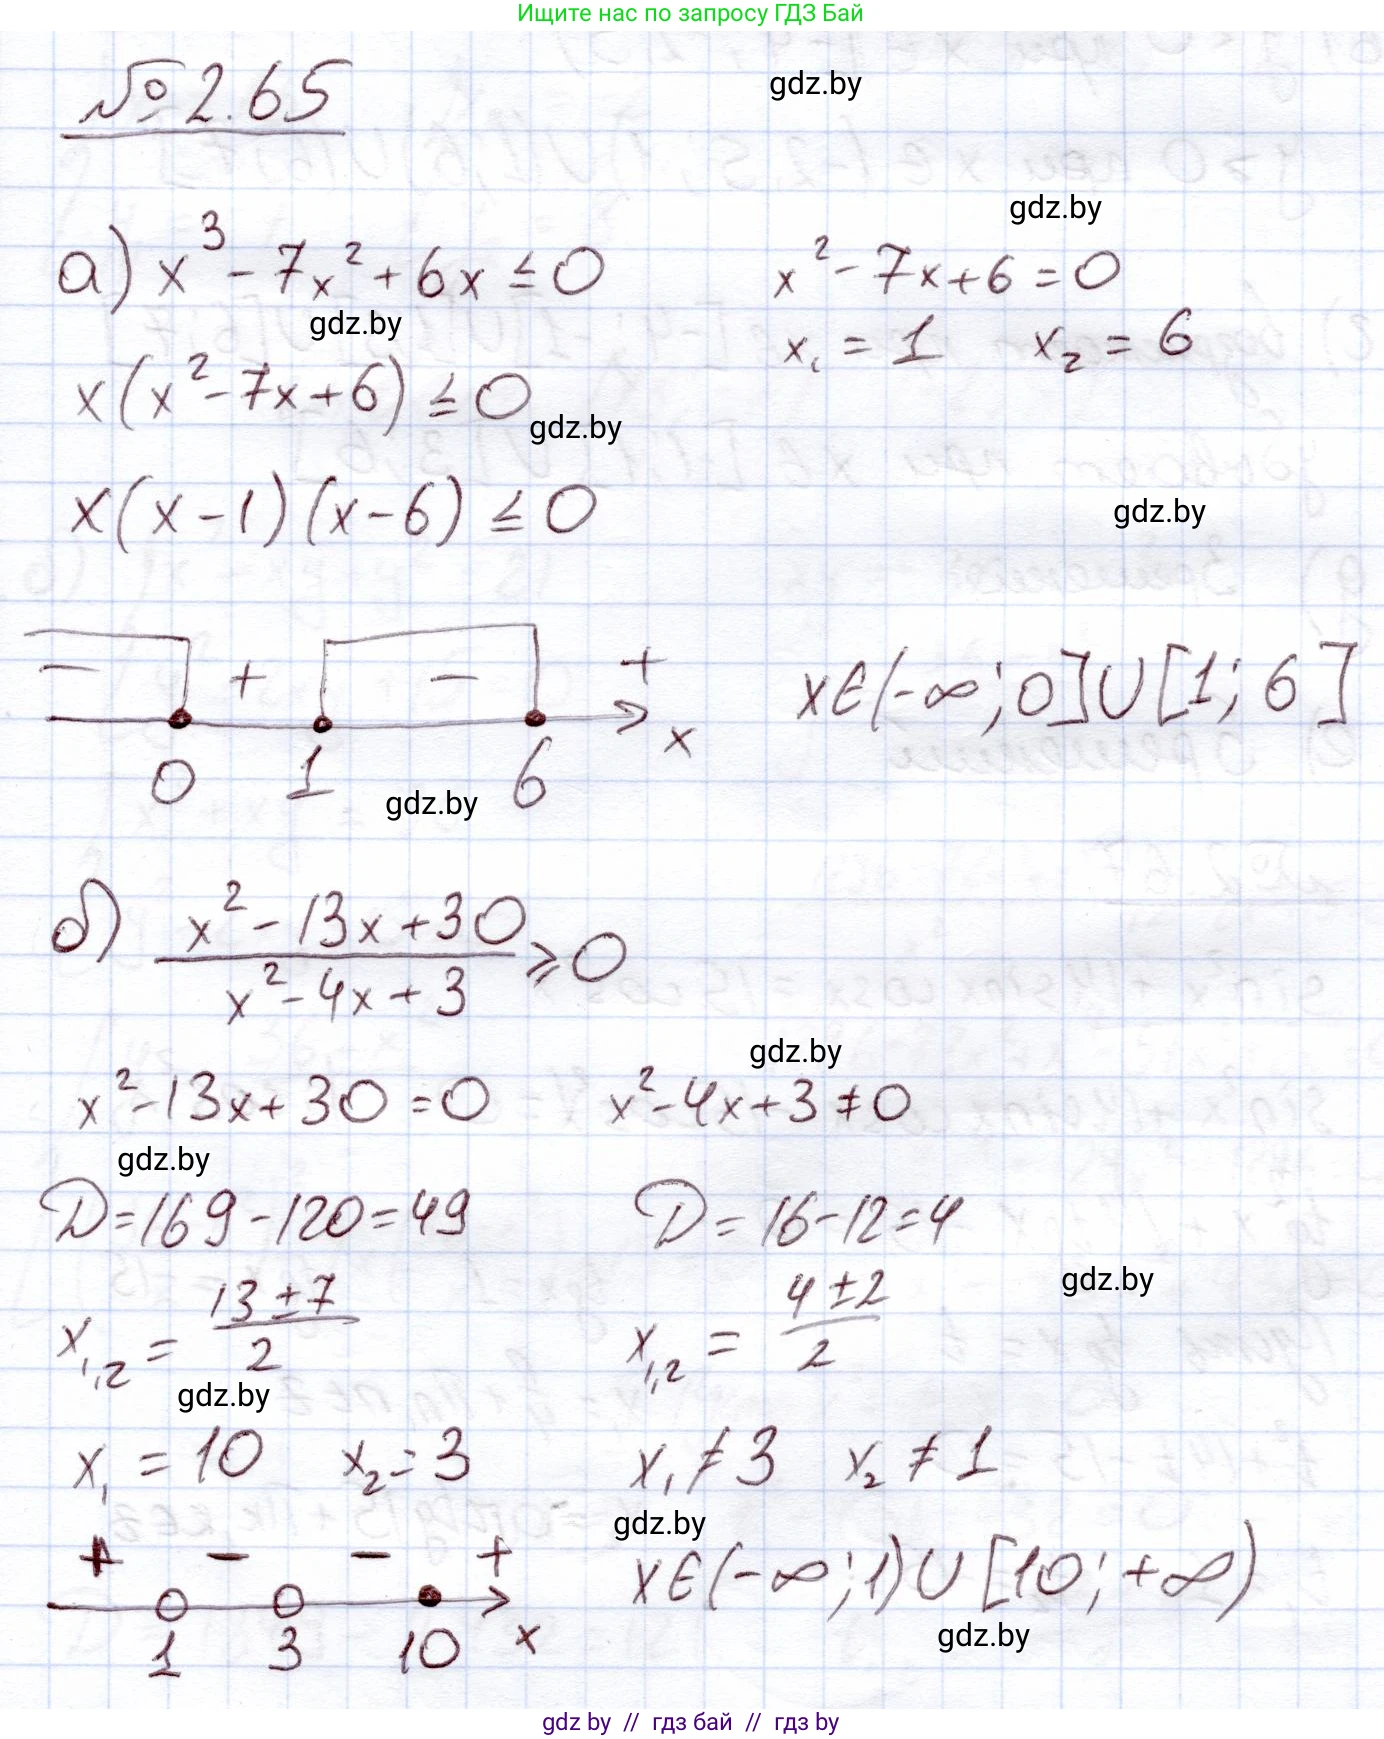 Ищите нас по запросу ГДЗ Бай
№ 2.65
gdz.by
gdz.by
а) x³ - 7x² + 6x ≤ 0
x² - 7x + 6 = 0
gdz.by
x₁ = 1 x₂ = 6
x(x² - 7x + 6) ≤ 0
gdz.by
x(x - 1)(x - 6) ≤ 0
gdz.by
- + - +
x∈(-∞; 0]∪[1; 6]
x
0 1 6
gdz.by
б) x² - 13x + 30 / x² - 4x + 3 ≥ 0
gdz.by
x² - 13x + 30 = 0 x² - 4x + 3 ≠ 0
gdz.by
D = 169 - 120 = 49 D = 16 - 12 = 4
gdz.by
x₁,₂ = 13 ± 7 / 2 x₁,₂ = 4 ± 2 / 2
gdz.by
x₁ = 10 x₂ = 3 x₁ ≠ 3 x₂ ≠ 1
gdz.by
+ - - +
x∈(-∞; 1)∪[10; +∞)
1 3 10 x
gdz.by
gdz by // гдз бай // гдз by